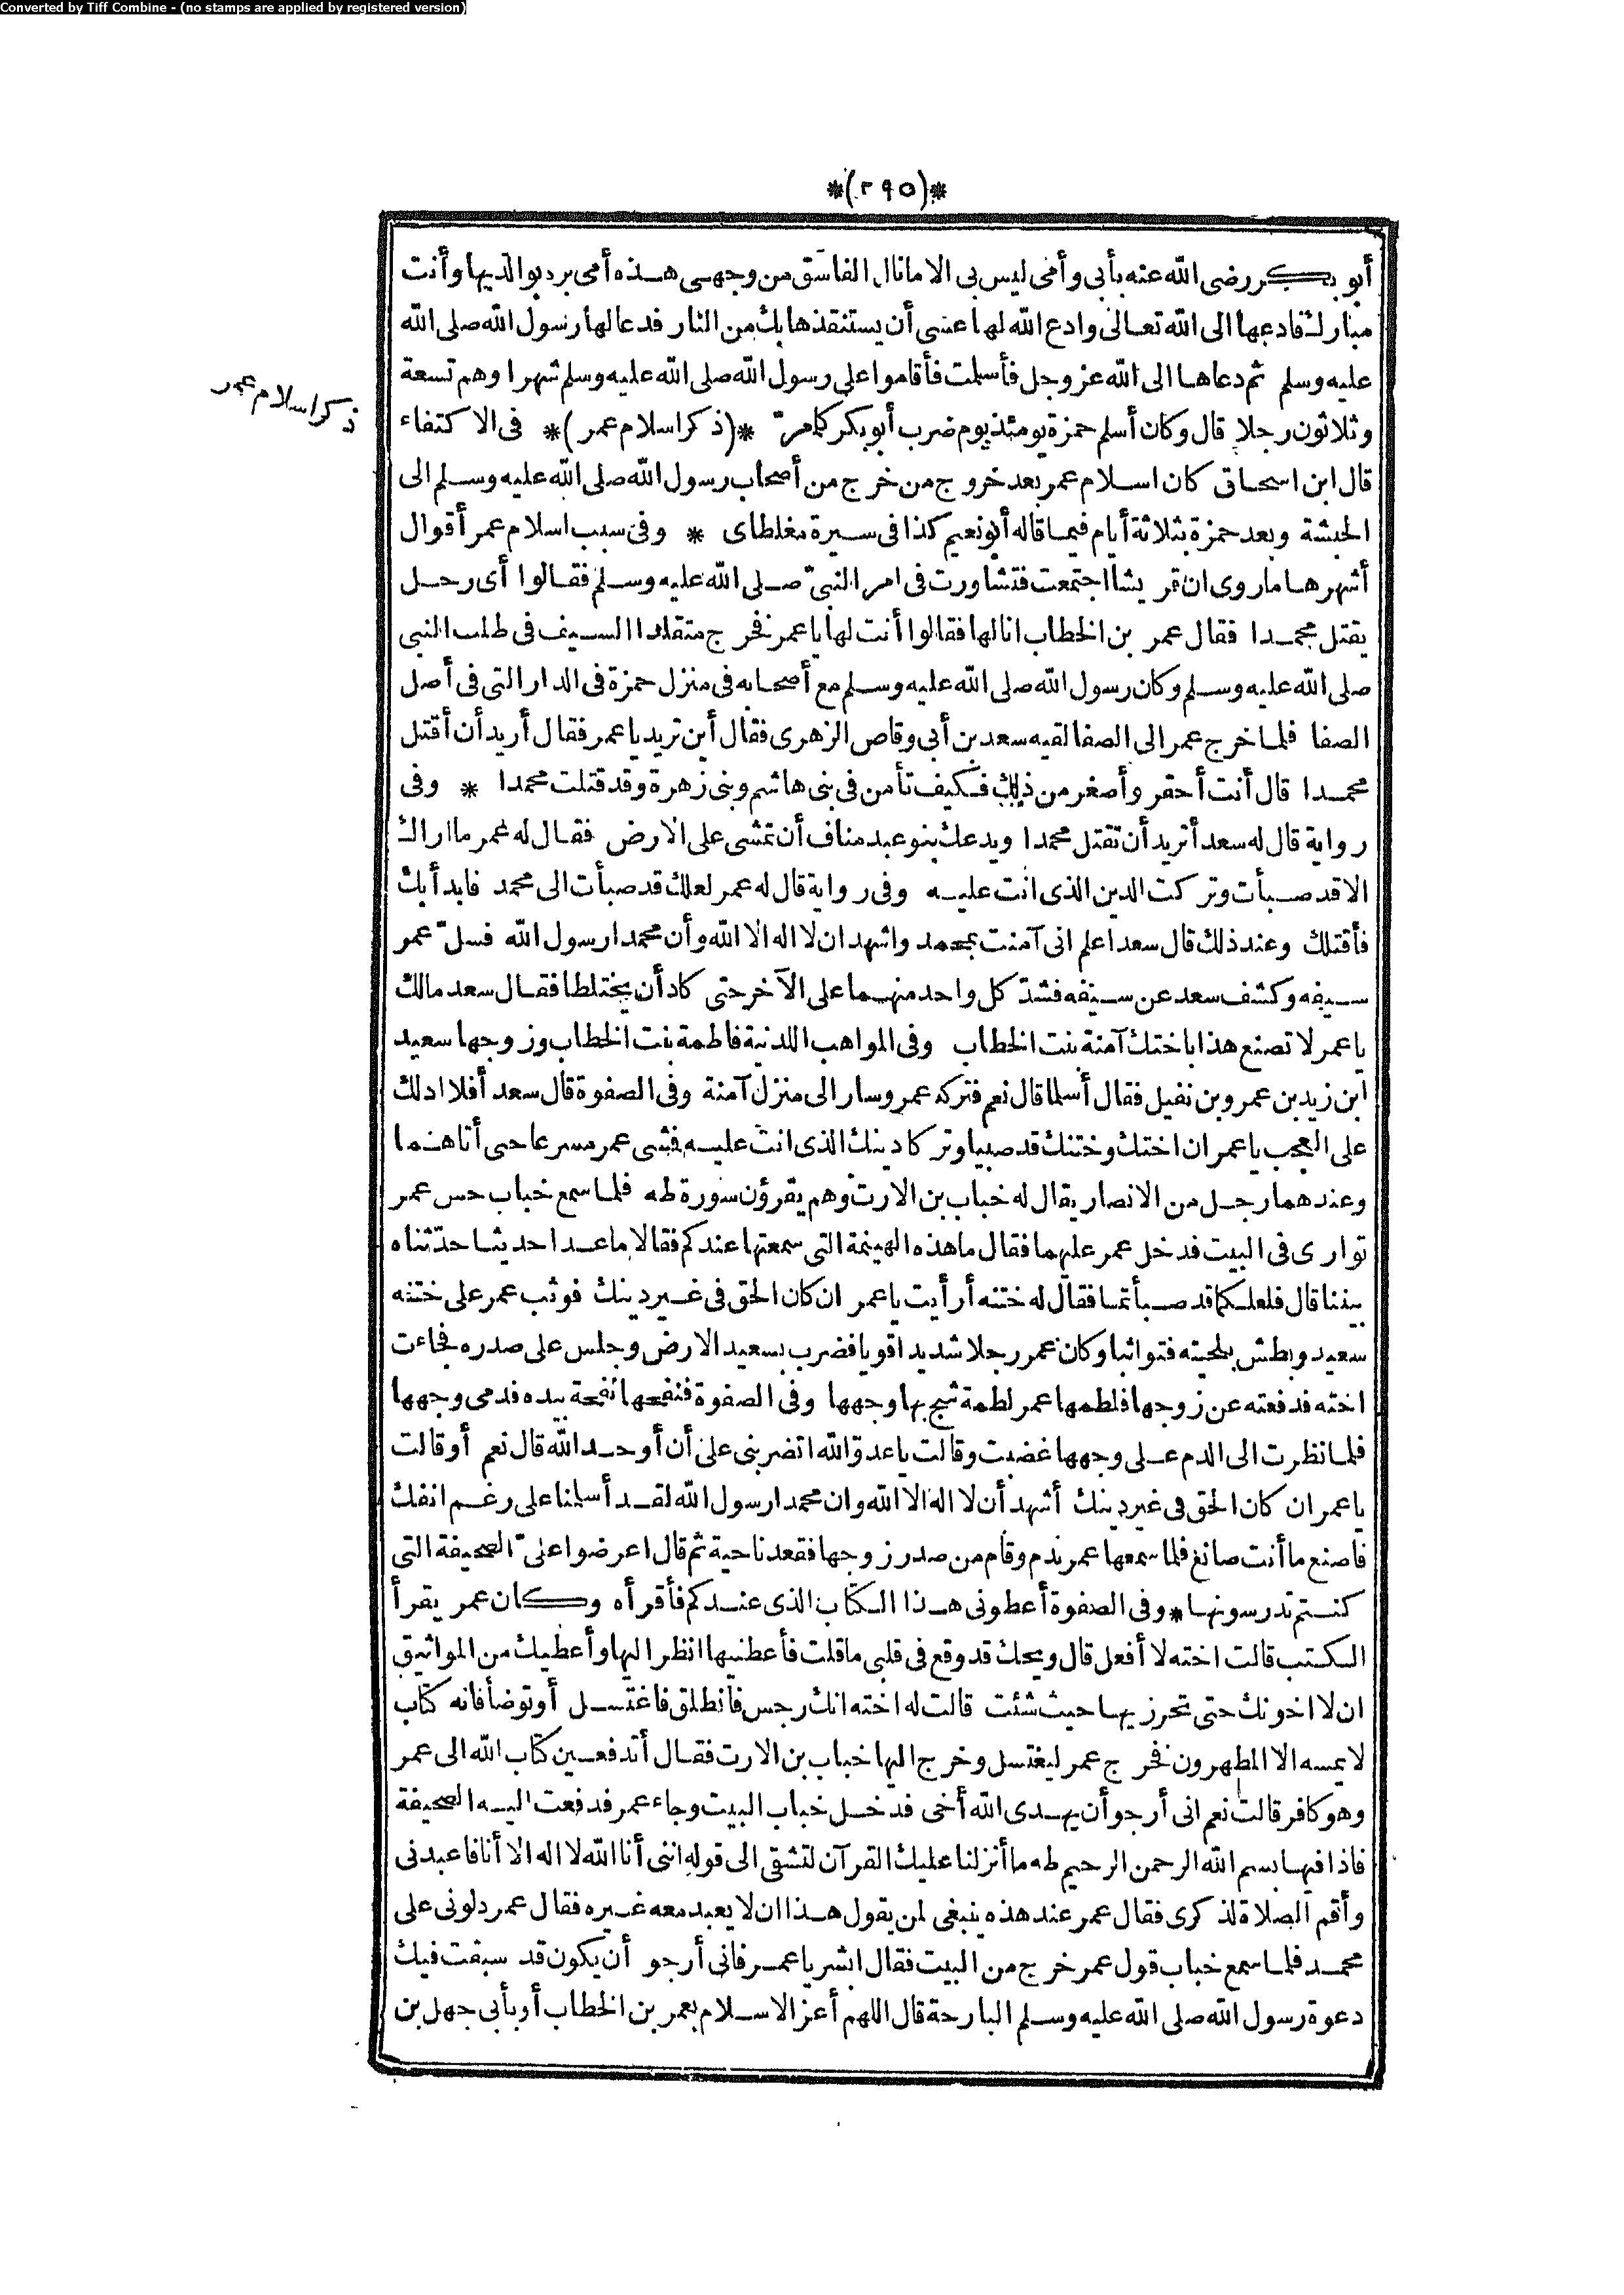 Converted by Tiff Combine - (no stamps are applied by registered version)
*(٢٩٥)*
أبو بكر رضى الله عنه بأبى وأمى ليس بى الا مانال الفاسق من وجهى هذه أمى بر دبوالديها وأنت
مبارك فادعها الى الله تعالى وادع الله لها عسى أن يستنقذها بك من النار فدعا لها رسول الله صلى الله
عليه وسلم ثم دعاها الى الله عز وجل فأسلمت فأقاموا على رسول الله صلى الله عليه وسلم شهرا وهم تسعة
ذكر اسلام عمر
وثلاثون رجلا قال وكان أسلم حمزة يومئذ يوم ضرب أبو بكر كمامر *(ذكر اسلام عمر)* فى الاكتفاء
قال ابن اسحاق كان اسلام عمر بعد خروج من خرج من أصحاب رسول الله صلى الله عليه وسلم الى
الحبشة وبعد حمزة بثلاثة أيام فيما قاله أبو نعيم كذا فى سيرة مغلطاى * وفى سبب اسلام عمر أقوال
أشهرها ماروى ان قريشا اجتمعت فتشاورت فى امر النبىّ صلى الله عليه وسلم فقالوا أى رجل
يقتل محمدا فقال عمر بن الخطاب انا لها فقالوا أنت لها يا عمر فخرج متقلدا السيف فى طلب النبى
صلى الله عليه وسلم وكان رسول الله صلى الله عليه وسلم مع أصحابه فى منزل حمزة فى الدار التى فى أصل
الصفا فلما خرج عمر الى الصفا لقيه سعد بن أبى وقاص الزهرى فقال أين تريد يا عمر فقال أريد أن أقتل
محمدا قال أنت أحقر وأصغر من ذلك فكيف تأمن فى بنى هاشم وبنى زهرة وقد قتلت محمدا * وفى
رواية قال له سعد أتريد أن تقتل محمدا ويدعك بنو عبد مناف أن تمشى على الارض فقال له عمر ما اراك
الا قد صبأت وتركت الدين الذى انت عليه وفى رواية قال له عمر لعلك قد صبأت الى محمد فابدأ بك
فأقتلك وعند ذلك قال سعد اعلم انى آمنت بمحمد واشهد ان لا اله الا الله وأن محمدا رسول الله فسلّ عمر
سيفه وكشف سعد عن سيفه فشدّ كل واحد منهما على الآخر حتى كاد أن يختلطا فقال سعد مالك
يا عمر لا تصنع هذا باختك آمنة بنت الخطاب وفى المواهب اللدنية فاطمة بنت الخطاب وزوجها سعيد
ابن زيد بن عمرو بن نفيل فقال أسلما قال نعم فتركه عمر وسار الى منزل آمنة وفى الصفوة قال سعد أفلا ادلك
على العجب يا عمر ان اختك وختنك قد صبيا وتركا دينك الذى انت عليه فمشى عمر مسرعا حتى أتاهما
وعندهما رجل من الانصار يقال له خباب بن الارت وهم يقرؤن سورة طه فلما سمع خباب حس عمر
توارى فى البيت فدخل عمر عليهما فقال ما هذه الهينمة التى سمعتها عندكم فقالا ما عدا حديثا حدّثناه
بيننا قال فلعلكما قد صبأتما فقال له ختنه أرأيت يا عمر ان كان الحق فى غير دينك فوثب عمر على ختنه
سعيد وبطش بلحيته فتواثبا وكان عمر رجلا شديدا قويا فضرب بسعيد الارض وجلس على صدره فجاءت
اخته فدفعته عن زوجها فلطمها عمر لطمة شج بها وجهها وفى الصفوة فنفحها نفحة بيده فدمى وجهها
فلما نظرت الى الدم على وجهها غضبت وقالت يا عدوّ الله اتضربنى على أن أوحد الله قال نعم أو قالت
يا عمر ان كان الحق فى غير دينك أشهد أن لا اله الا الله وان محمدا رسول الله لقد أسلمنا على رغم انفك
فاصنع ما أنت صانع فلما سمعها عمر ندم وقام من صدر زوجها فقعد ناحية ثم قال اعرضوا علىّ الصحيفة التى
كنتم تدرسونها * وفى الصفوة أعطونى هذا الكتاب الذى عندكم فأقرأه وكان عمر يقرأ
الكتب قالت اخته لا أفعل قال ويحك قد وقع فى قلبى ما قلت فأعطنيها انظر اليها وأعطيك من المواثيق
ان لا اخونك حتى تحرزيها حيث شئت قالت له اخته انك رجس فانطلق فاغتسل أو توضأ فانه كتاب
لا يمسه الا المطهرون فخرج عمر ليغتسل وخرج اليها خباب بن الارت فقال أتدفعين كتاب الله الى عمر
وهو كافر قالت نعم انى أرجو أن يهدى الله أخى فدخل خباب البيت وجاء عمر فدفعت اليه الصحيفة
فاذا فيها بسم الله الرحمن الرحيم طه ما أنزلنا عليك القرآن لتشقى الى قوله اننى أنا الله لا اله الا أنا فاعبدنى
وأقم الصلاة لذكرى فقال عمر عند هذه ينبغى لمن يقول هذا ان لا يعبد معه غيره فقال عمر دلونى على
محمد فلما سمع خباب قول عمر خرج من البيت فقال ابشر يا عمر فانى أرجو أن يكون قد سبقت فيك
دعوة رسول الله صلى الله عليه وسلم البارحة قال اللهم أعز الاسلام بعمر بن الخطاب أو بأبى جهل بن